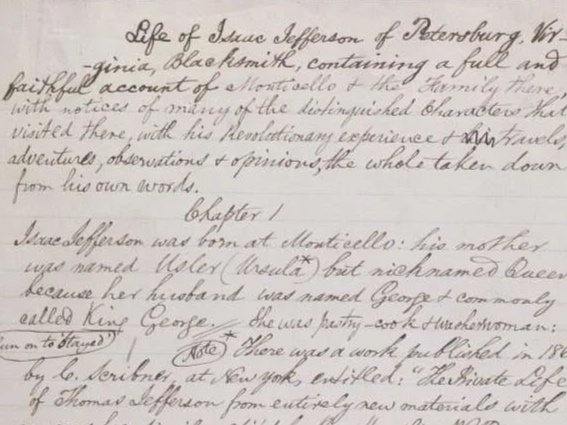 Life of Isaac Jefferson of Petersburg, Vir-
-ginia, Blacksmith, containing a full and
faithful account of Monticello & the Family there,
with notices of many of the distinguished Characters that
visited there, with his Revolutionary experience & travels,
adventures, observations & opinions, the whole taken down
from his own words.
Chapter 1
Isaac Jefferson was born at Monticello: his mother
was named Usler (Ursula*) but nicknamed Queen
because her husband was named George & commonly
called King George. She was pastry-cook & washerwoman:
run on to Stayed"
Note* There was a work published in 186
by C. Scribner, at New York, entitled: "The Private Life
of Thomas Jefferson from entirely new materials with